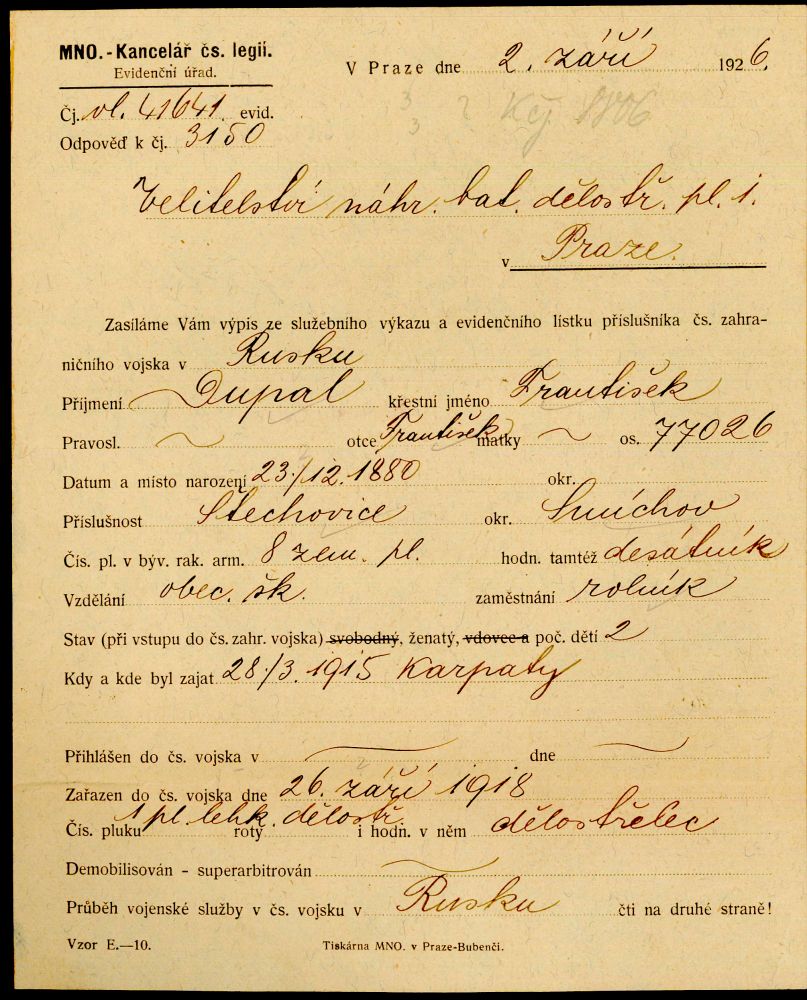 MNO.-Kancelář čs. legií.
Evidenční úřad.
V Praze dne 2. září 1926.
Čj. vl. 41641. evid.
Odpověď k čj. 3150
Velitelství náhr. bat. dělostř. pl. 1.
v Praze.
Zasíláme Vám výpis ze služebního výkazu a evidenčního lístku příslušníka čs. zahra-
ničního vojska v Rusku
Příjmení Dupal křestní jméno František
Pravosl. otce František matky os. 77026
Datum a místo narození 23./12.1880 okr.
Příslušnost Štěchovice okr. Smíchov
Čís. pl. v býv. rak. arm. 8 zem. pl. hodn. tamtéž desátník
Vzdělání obec. šk. zaměstnání rolník
Stav (při vstupu do čs. zahr. vojska) svobodný, ženatý, vdovec a poč. dětí 2
Kdy a kde byl zajat 28./3. 1915 Karpaty
Přihlášen do čs. vojska v dne
Zařazen do čs. vojska dne 26. září 1918
Čís. pluku 1 pl. lehk. dělostř. roty i hodn. v něm dělostřelec
Demobilisován - superarbitrován
Průběh vojenské služby v čs. vojsku v Rusku čti na druhé straně!
Vzor E.—10. Tiskárna MNO. v Praze-Bubenči.